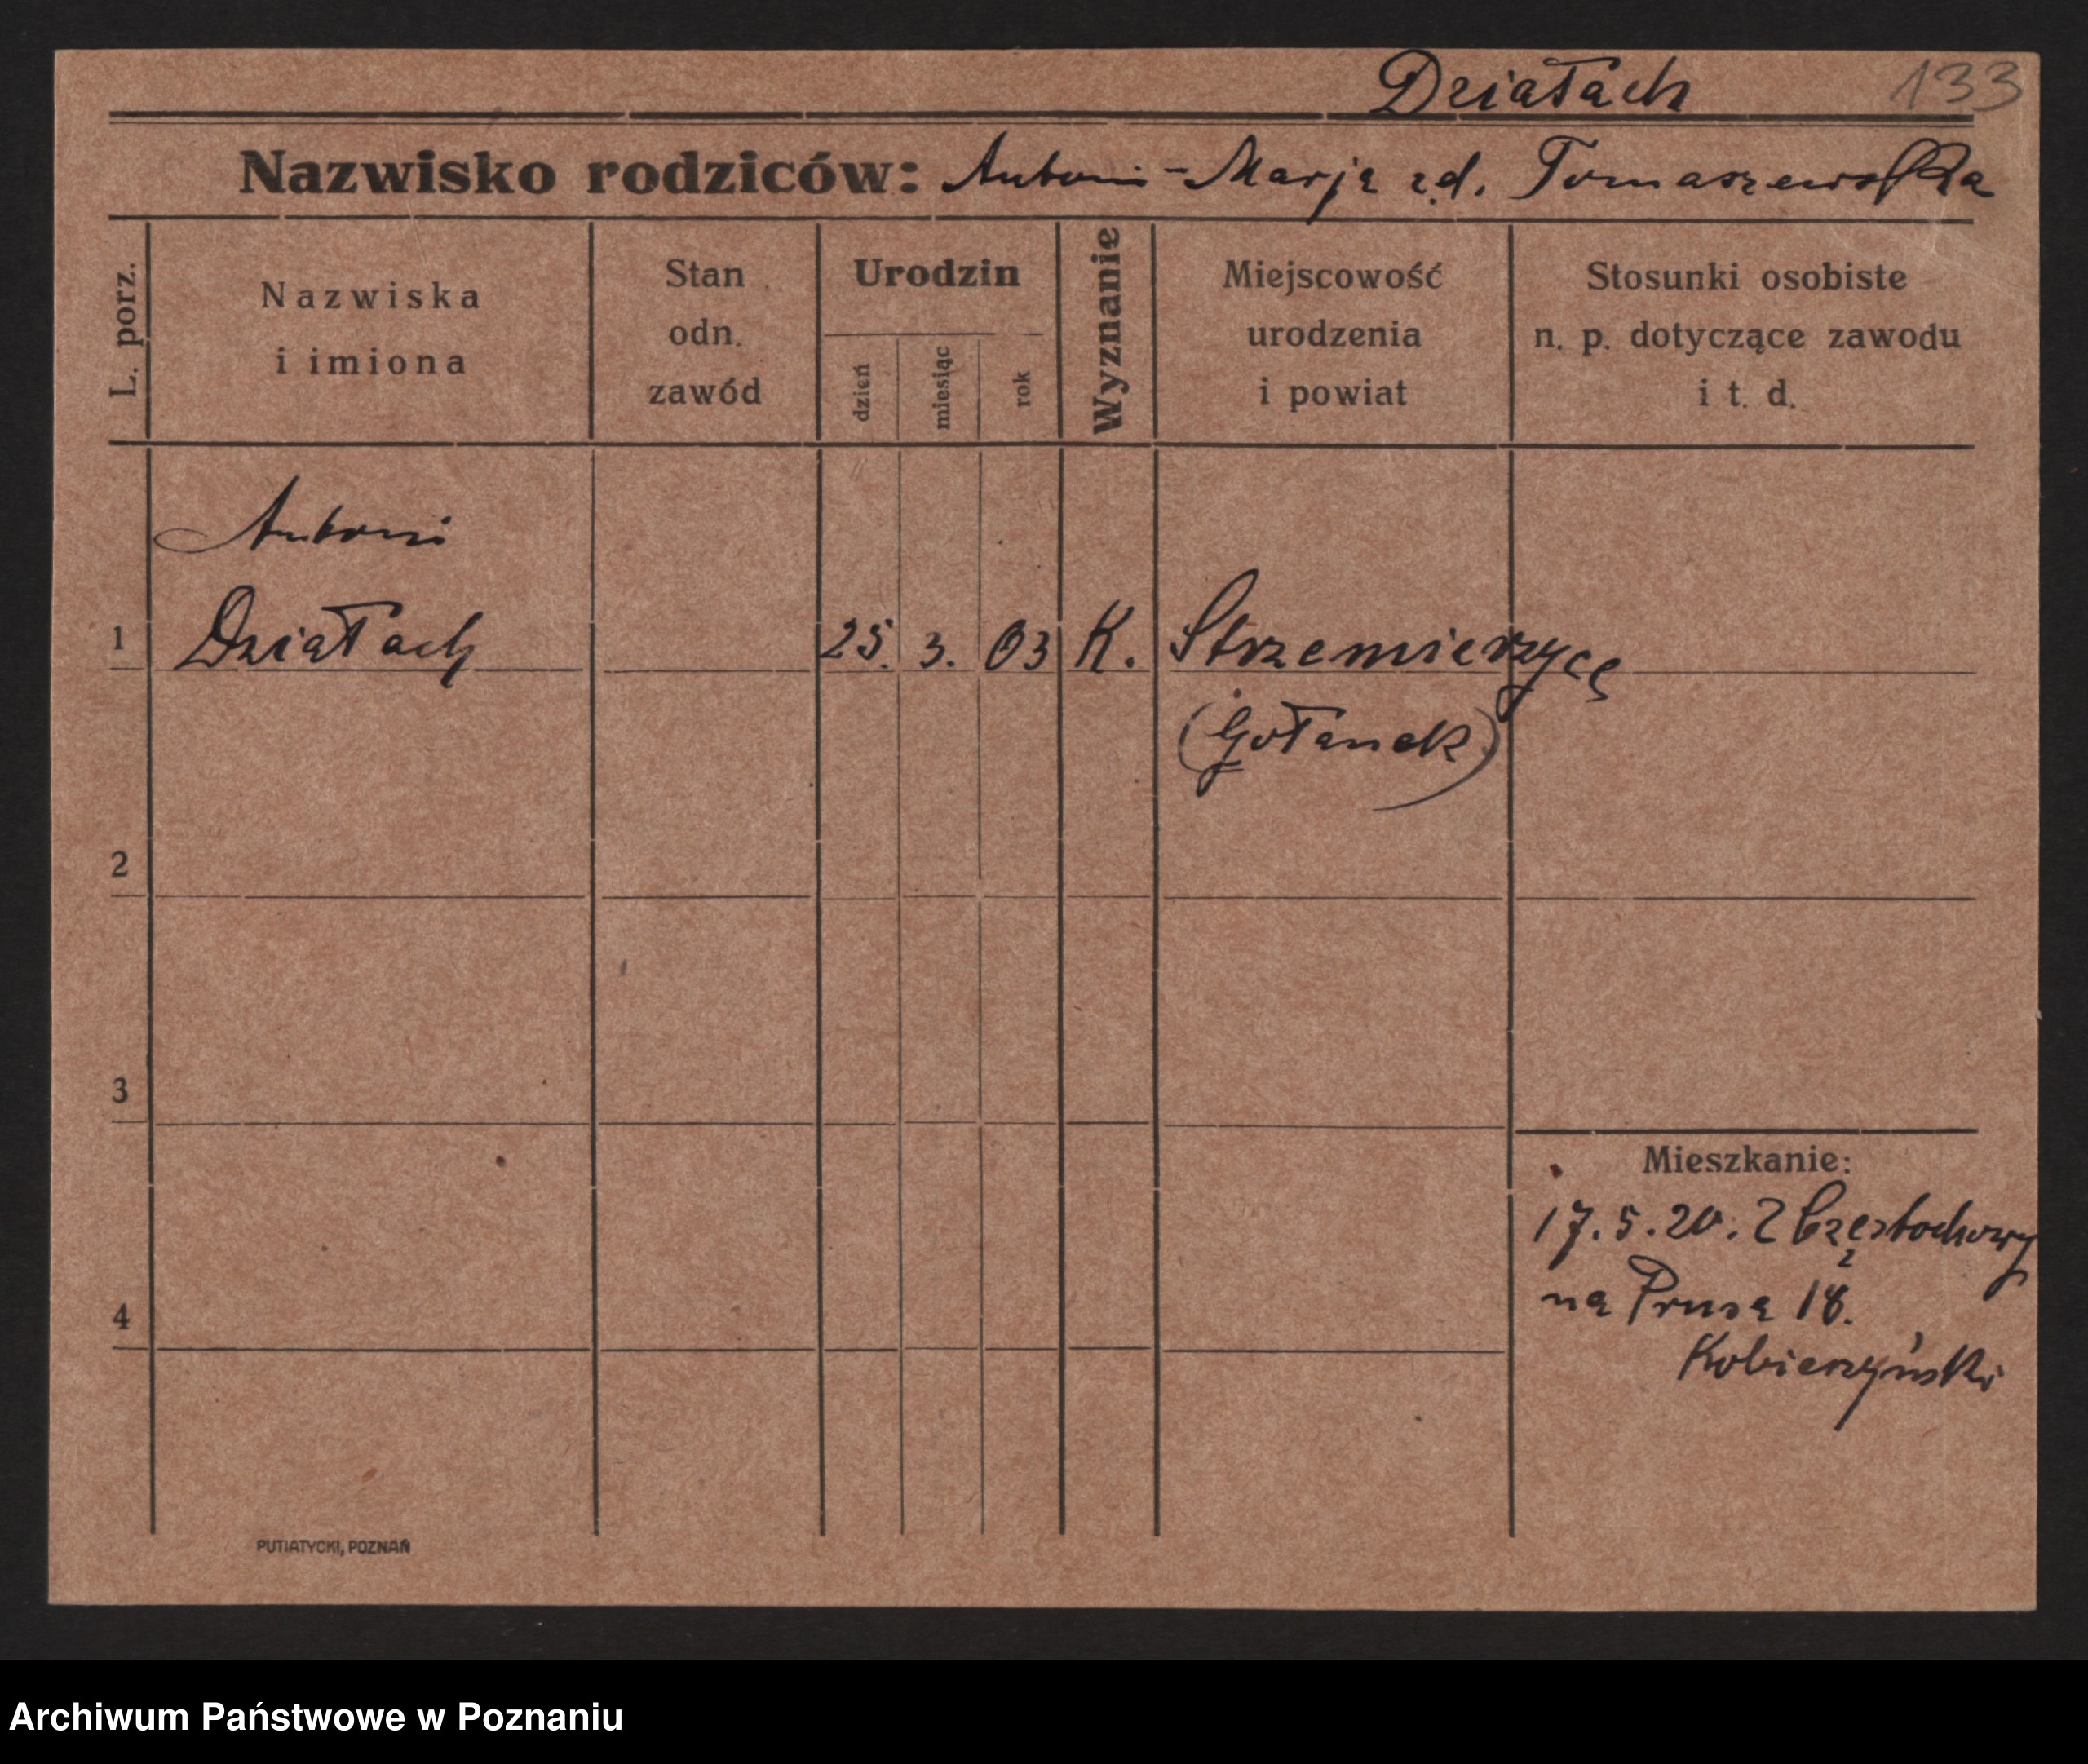 Działach 133
Nazwisko rodziców: Antoni - Marja z d. Tomaszewska
L. porz.
Nazwiska
i imiona
Stan
odn.
zawód
Urodzin
dzień
miesiąc
rok
Wyznanie
Miejscowość
urodzenia
i powiat
Stosunki osobiste
n. p. dotyczące zawodu
i t. d.
Antoni
1 Działach 25. 3. 03 K. Strzemierzyce
(Gołanek)
2
3
Mieszkanie:
17.5.20. Z Częstochowy
na Prusa 18.
4
Kobierzyński
PUTIATYCKI, POZNAŃ
Archiwum Państwowe w Poznaniu